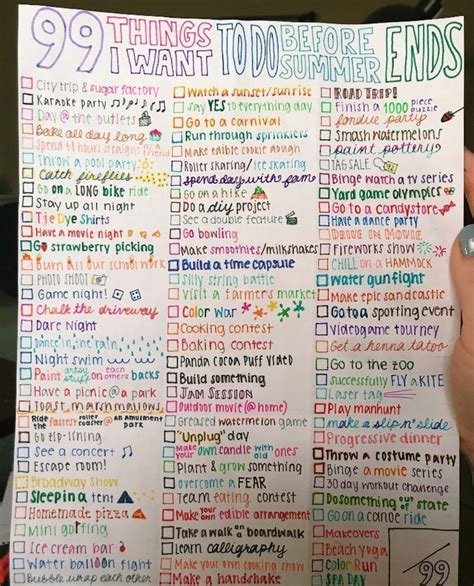 99 THINGS I WANT TO DO BEFORE SUMMER ENDS
City trip & sugar factory
Karaoke party
Day @ the outlets
Bake all day long
Spend 48 hours straight w/ friends
Throw a pool party
Catch fireflies
Go on a LONG bike ride
Stay up all night
Tie Dye Shirts
Have a movie night
Go strawberry picking
Burn all our school work
PHOTO SHOOT
Game night!
Chalk the driveway
Dare Night
Dance in the rain
Night swim
Paint artsy stuff on each others backs
Have a picnic @ a park
Toast marshmallows
Ride the fastest roller coaster @ an amusement park
Go zip-lining
See a concert
Escape room!
Broadway Show
Sleep in a tent
Homemade pizza
Mini golfing
Ice cream bar
Water balloon fight
Bubble wrap each other
Watch a sunset/sunrise
Say YES to everything day
Go to a carnival
Run through sprinklers
Make edible cookie dough
Roller skating/ice skating
Spend day with fam
Go on a hike
Do a diy project
See a double feature
Go bowling
Make smoothies/milkshakes
Build a time capsule
Silly string battle
Visit a farmers market
Color War
Cooking contest
Baking contest
Panda cocoa puff video
Build something
JAM SESSION
Outdoor movie (@ home)
Greased watermelon game
"Unplug" day
Make your own candle with old ones
Plant & grow something
overcome a FEAR
Team eating contest
Make your own edible arrangement
Take a walk on a boardwalk
Learn calligraphy
Make a handshake
ROAD TRIP!
Finish a 1000 piece puzzle
fondue party
Smash watermelons
paint pottery
TAG SALE
Binge watch a tv series
Yard game olympics
Go to a candystore
Have a dance party
DRIVE IN MOVIE
Fireworks show
CHILL on a HAMMOCK
Water gun fight
Make epic sandcastle
Go to a sporting event
Videogame tourney
Get a henna tatoo
Go to the zoo
successfully FLY a KITE
Laser tag
Play manhunt
make a slip n' slide
Progressive dinner
Throw a costume party
Binge a movie series
30 day workout challenge
Do something out of state
Go on a canoe ride
Makeovers
Beach yoga
Color Run
SPA DAY
99